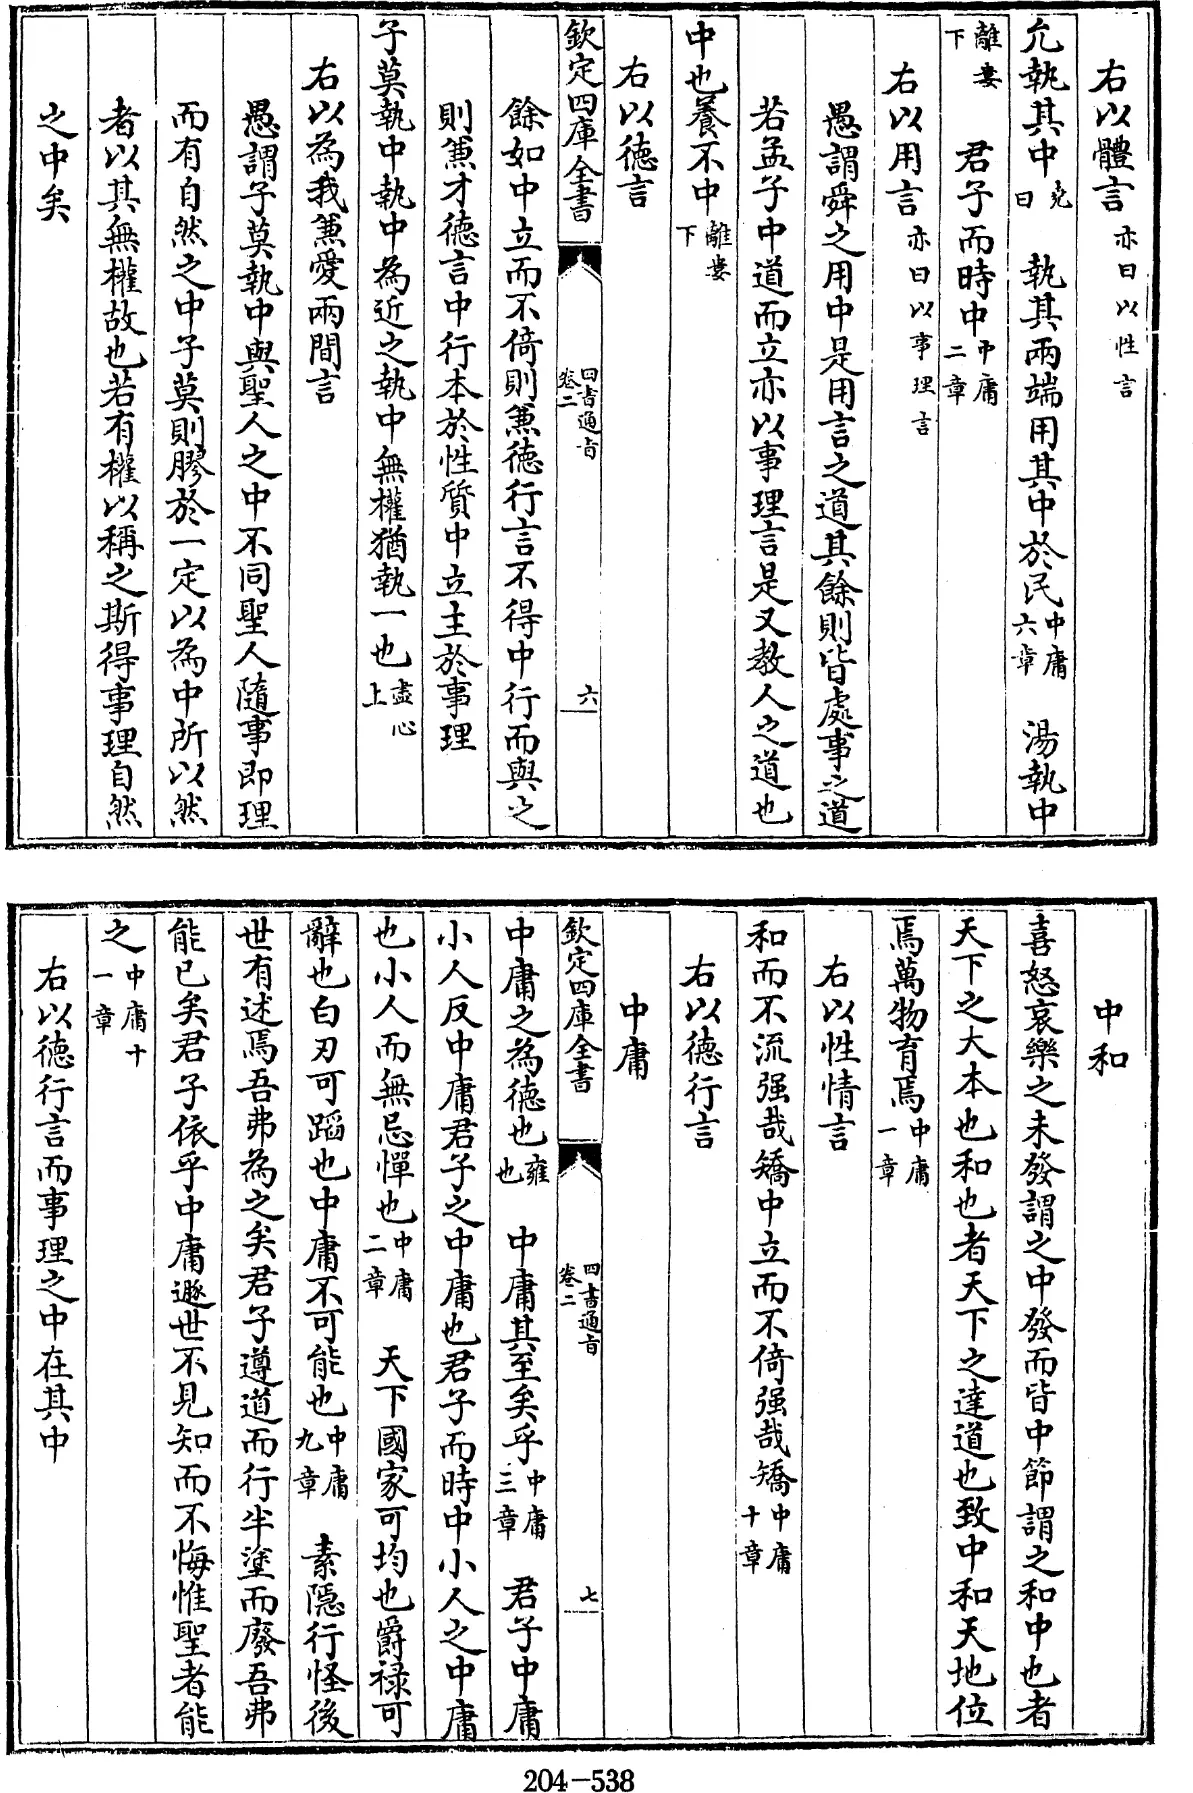 右以體言亦曰以性言
允執其中堯曰　執其兩端用其中於民中庸六章　湯執中
離婁下　君子而時中中庸二章
右以用言亦曰以事理言
愚謂舜之用中是用言之道其餘則皆處事之道
若孟子中道而立亦以事理言是又教人之道也
中也養不中離婁下
右以徳言
欽定四庫全書　四書通旨卷二　六
餘如中立而不倚則兼徳行言不得中行而與之
則兼才徳言中行本於性質中立主於事理
子莫執中執中為近之執中無權猶執一也盡心上
右以為我兼愛兩間言
愚謂子莫執中與聖人之中不同聖人隨事即理
而有自然之中子莫則膠於一定以為中所以然
者以其無權故也若有權以稱之斯得事理自然
之中矣
中和
喜怒哀樂之未發謂之中發而皆中節謂之和中也者
天下之大本也和也者天下之達道也致中和天地位
焉萬物育焉中庸一章
右以性情言
和而不流强哉矯中立而不倚强哉矯中庸十章
右以徳行言
中庸
欽定四庫全書　四書通旨卷二　七
中庸之為徳也雍也　中庸其至矣乎中庸三章　君子中庸
小人反中庸君子之中庸也君子而時中小人之中庸
也小人而無忌憚也中庸二章　天下國家可均也爵禄可
辭也白刃可蹈也中庸不可能也中庸九章　素隱行怪後
世有述焉吾弗為之矣君子遵道而行半塗而廢吾弗
能已矣君子依乎中庸遯世不見知而不悔惟聖者能
之中庸十一章
右以徳行言而事理之中在其中
204-538